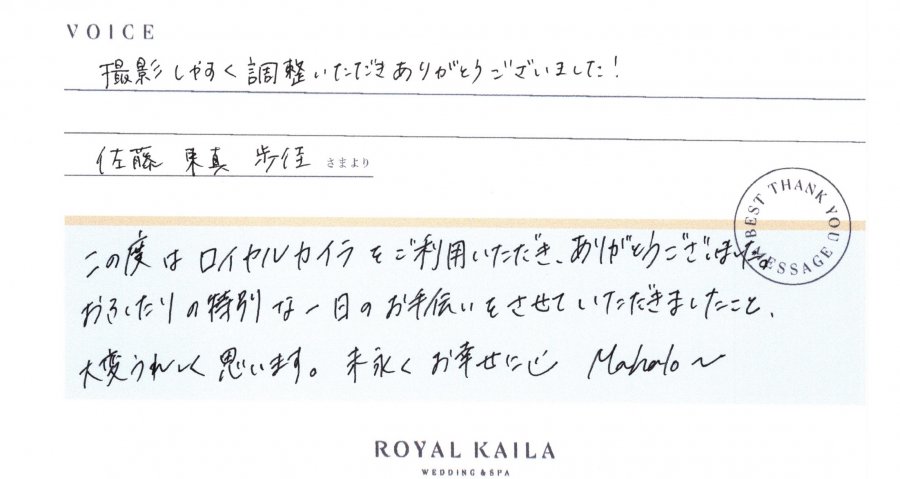 VOICE
撮影しやすく調整いただきありがとうございました!
佐藤 東真 歩佳 さまより
BEST THANK YOU MESSAGE
この度はロイヤルカイラをご利用いただき、ありがとうございました。
おふたりの特別な一日のお手伝いをさせていただきましたこと、
大変うれしく思います。末永くお幸せに Mahalo~
ROYAL KAILA
WEDDING & SPA